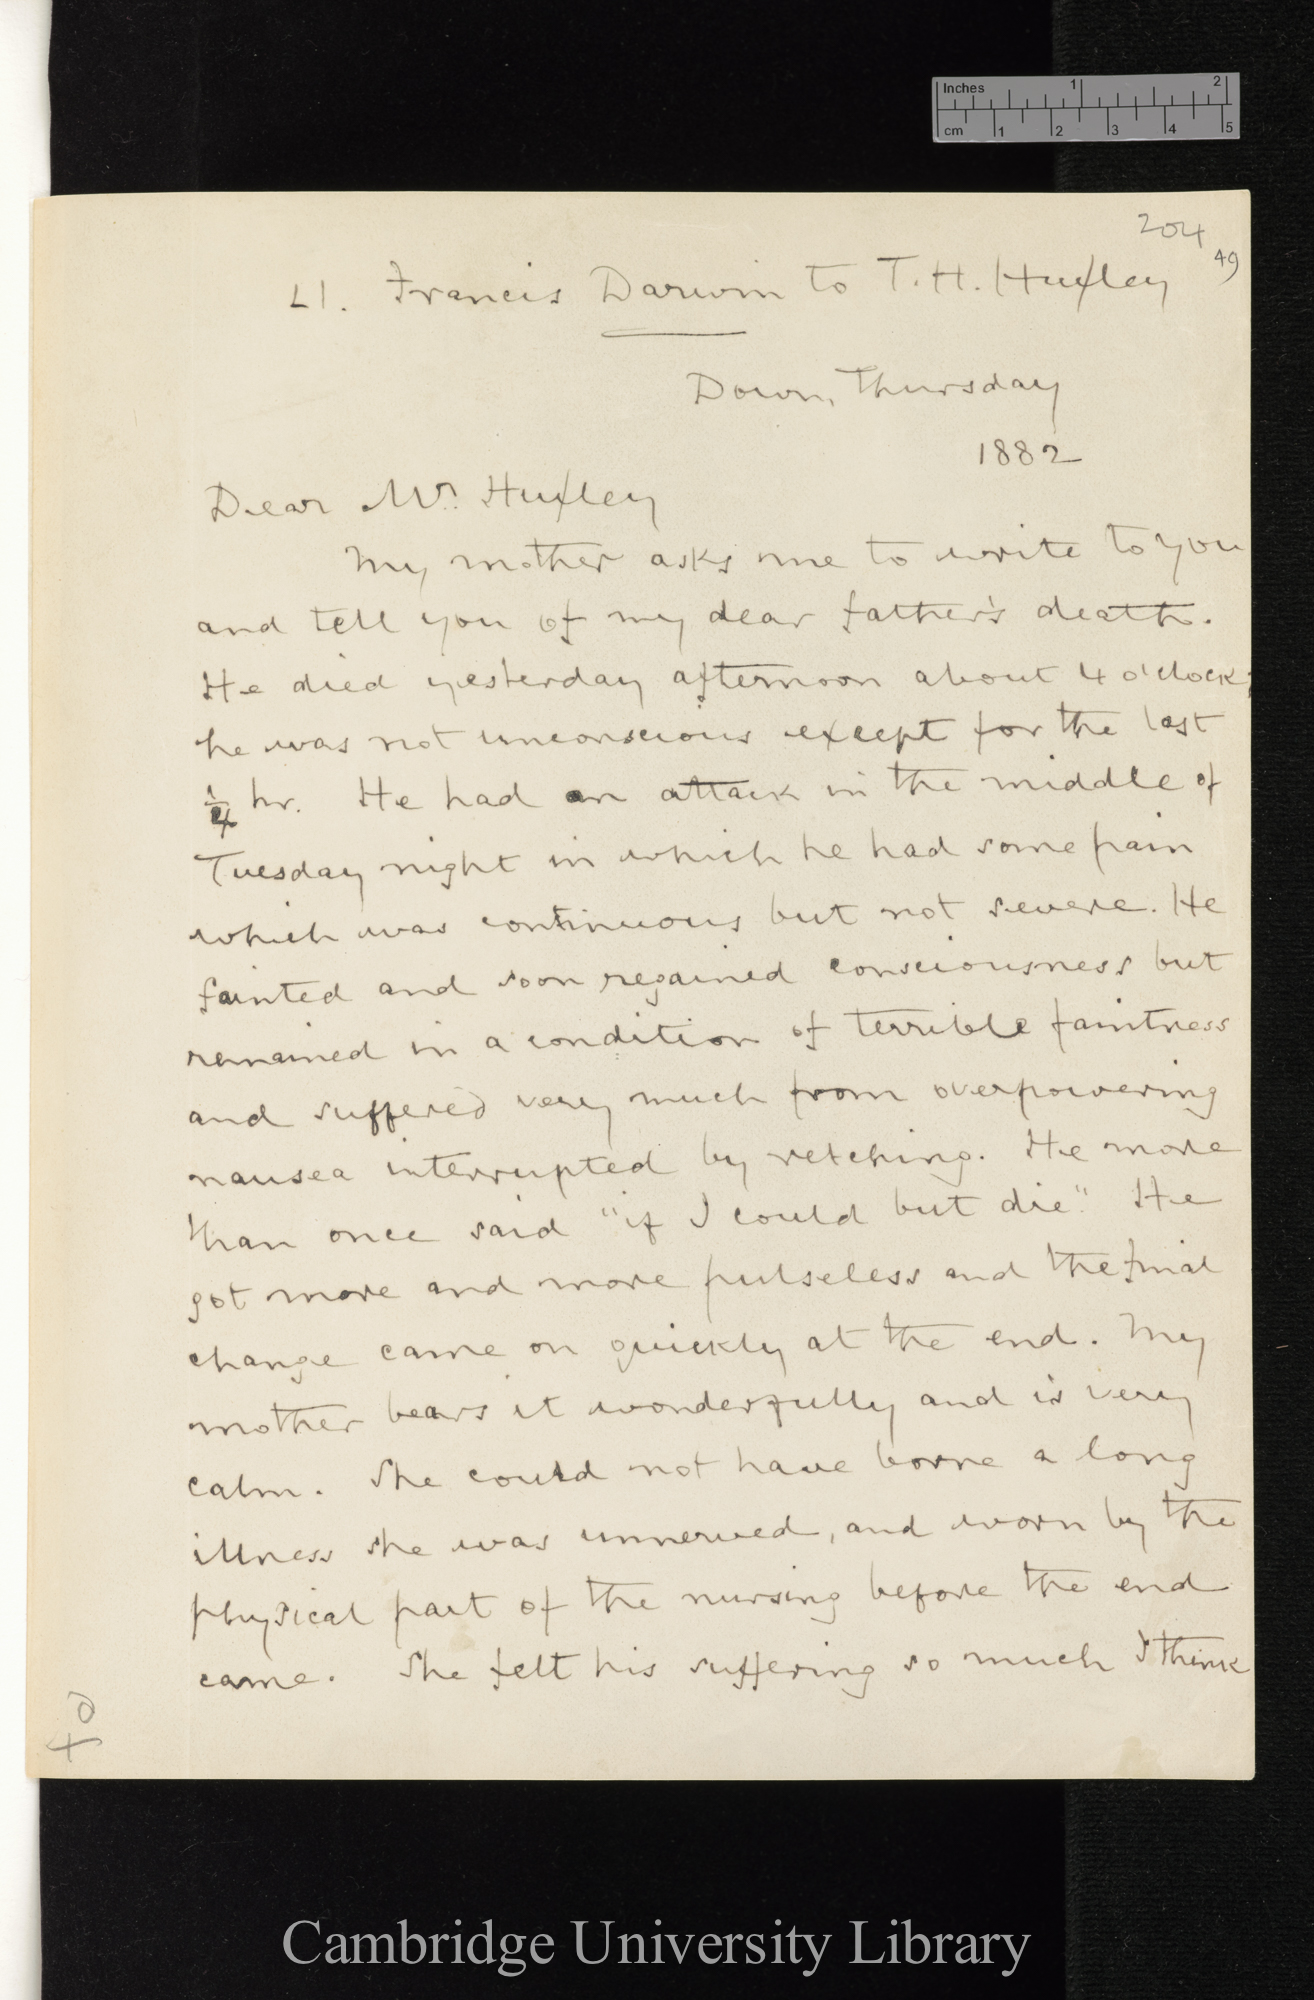 Inches 1 2
cm 1 2 3 4 5
204
49
L1. Francis Darwin to T. H. Huxley
Down, Thursday
1882
Dear Mr. Huxley
My mother asks me to write to you
and tell you of my dear father's death.
He died yesterday afternoon about 4 o'clock;
he was not unconscious except for the last
1/4 hr. He had an attack in the middle of
Tuesday night in which he had some pain
which was continuous but not severe. He
fainted and soon regained consciousness but
remained in a condition of terrible faintness
and suffered very much from overpowering
nausea interrupted by retching. He more
than once said "if I could but die". He
got more and more pulseless and the final
change came on quickly at the end. My
mother bears it wonderfully and is very
calm. She could not have borne a long
illness she was unnerved, and worn by the
physical part of the nursing before the end
came. She felt his suffering so much I think
Cambridge University Library